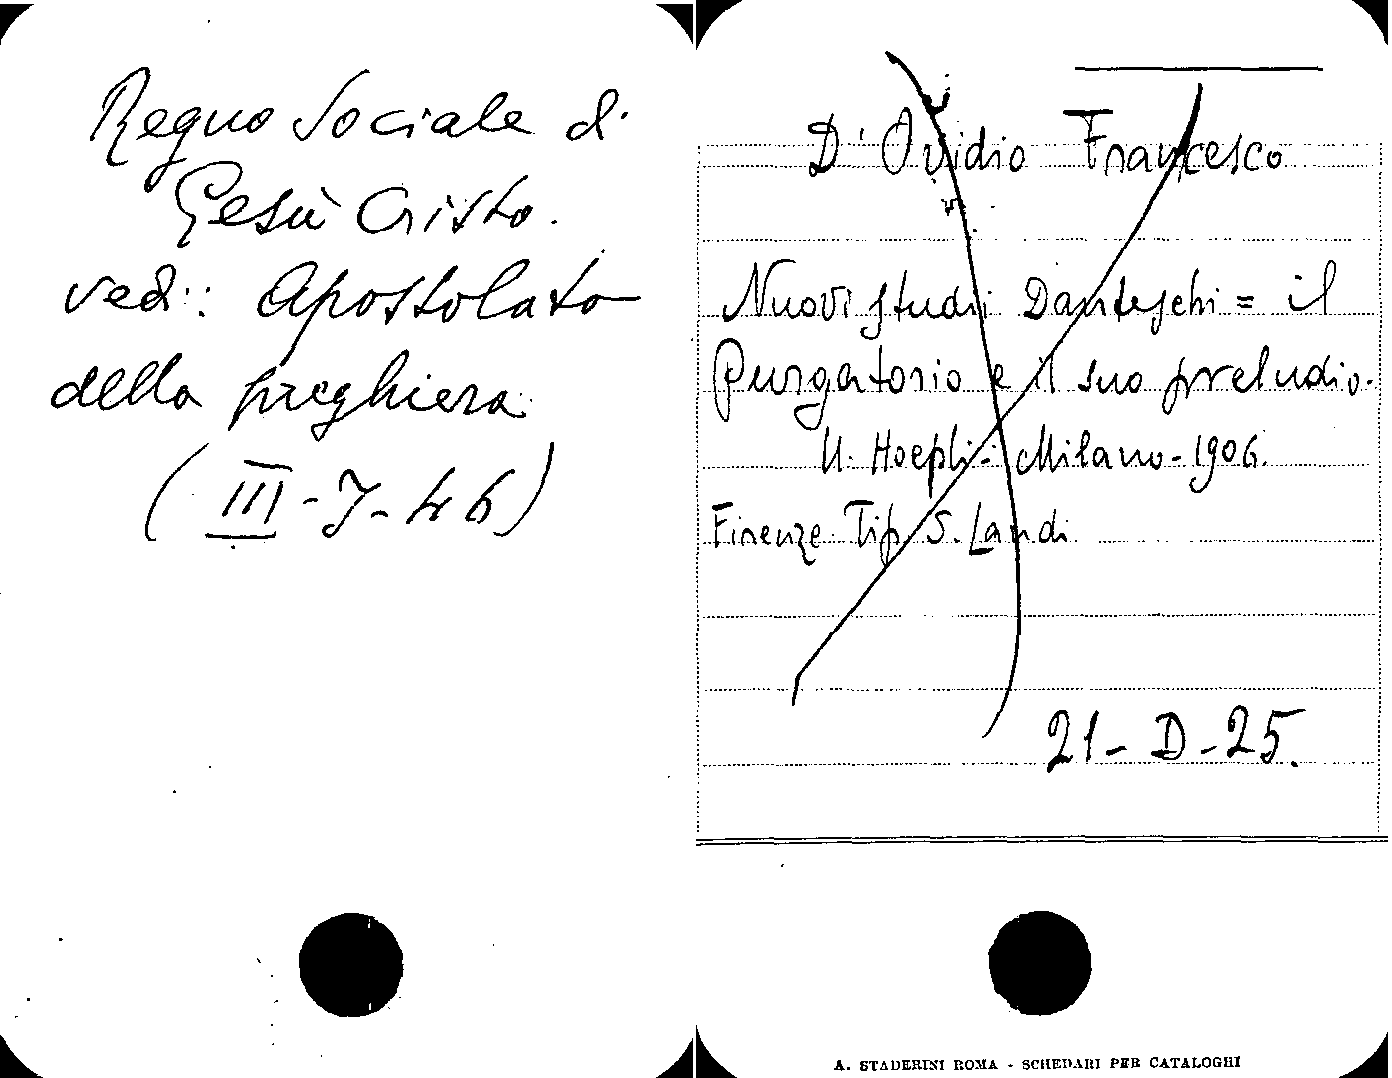 Regno Sociale di
Gesù Cristo.
vedi: Apostolato
della preghiera
(III-J-46)
D'Ovidio Francesco
Nuovi studii Danteschi = il
Purgatorio e il suo preludio.
U. Hoepli - Milano - 1906.
Firenze Tip. S. Landi
21 - D - 25.
A. STADERINI ROMA - SCHEDARI PER CATALOGHI